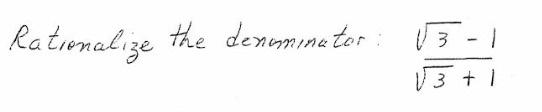 Rationalize the denominator: √3 - 1
√3 + 1